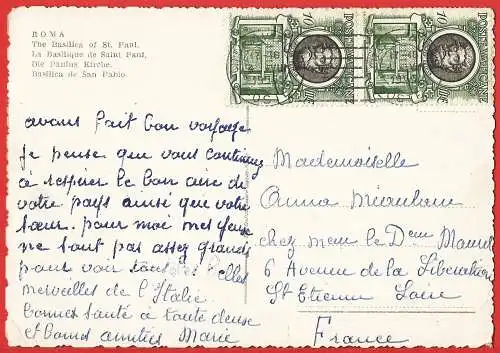 ROMA
The Basilica of St. Paul.
La Basilique de Saint Paul.
Die Paulus Kirche.
Basilica de San Pablo.
POSTE VATICANE
10
POSTE VATICANE
10
avons fait bon voyage
je pense que vous continuez
à respirer le bon aire de
votre pays ainsi que votre
sœur. pour moi mes yeux
ne sont pas assez grands
pour voir tous
merveilles de l'Italie
bonnes santé à toute deuse
et bonnes amitiés Marie
Mademoiselle
Anna
chez mem le Dem
6 Avenue de la Libération
St Etienne Loire
France